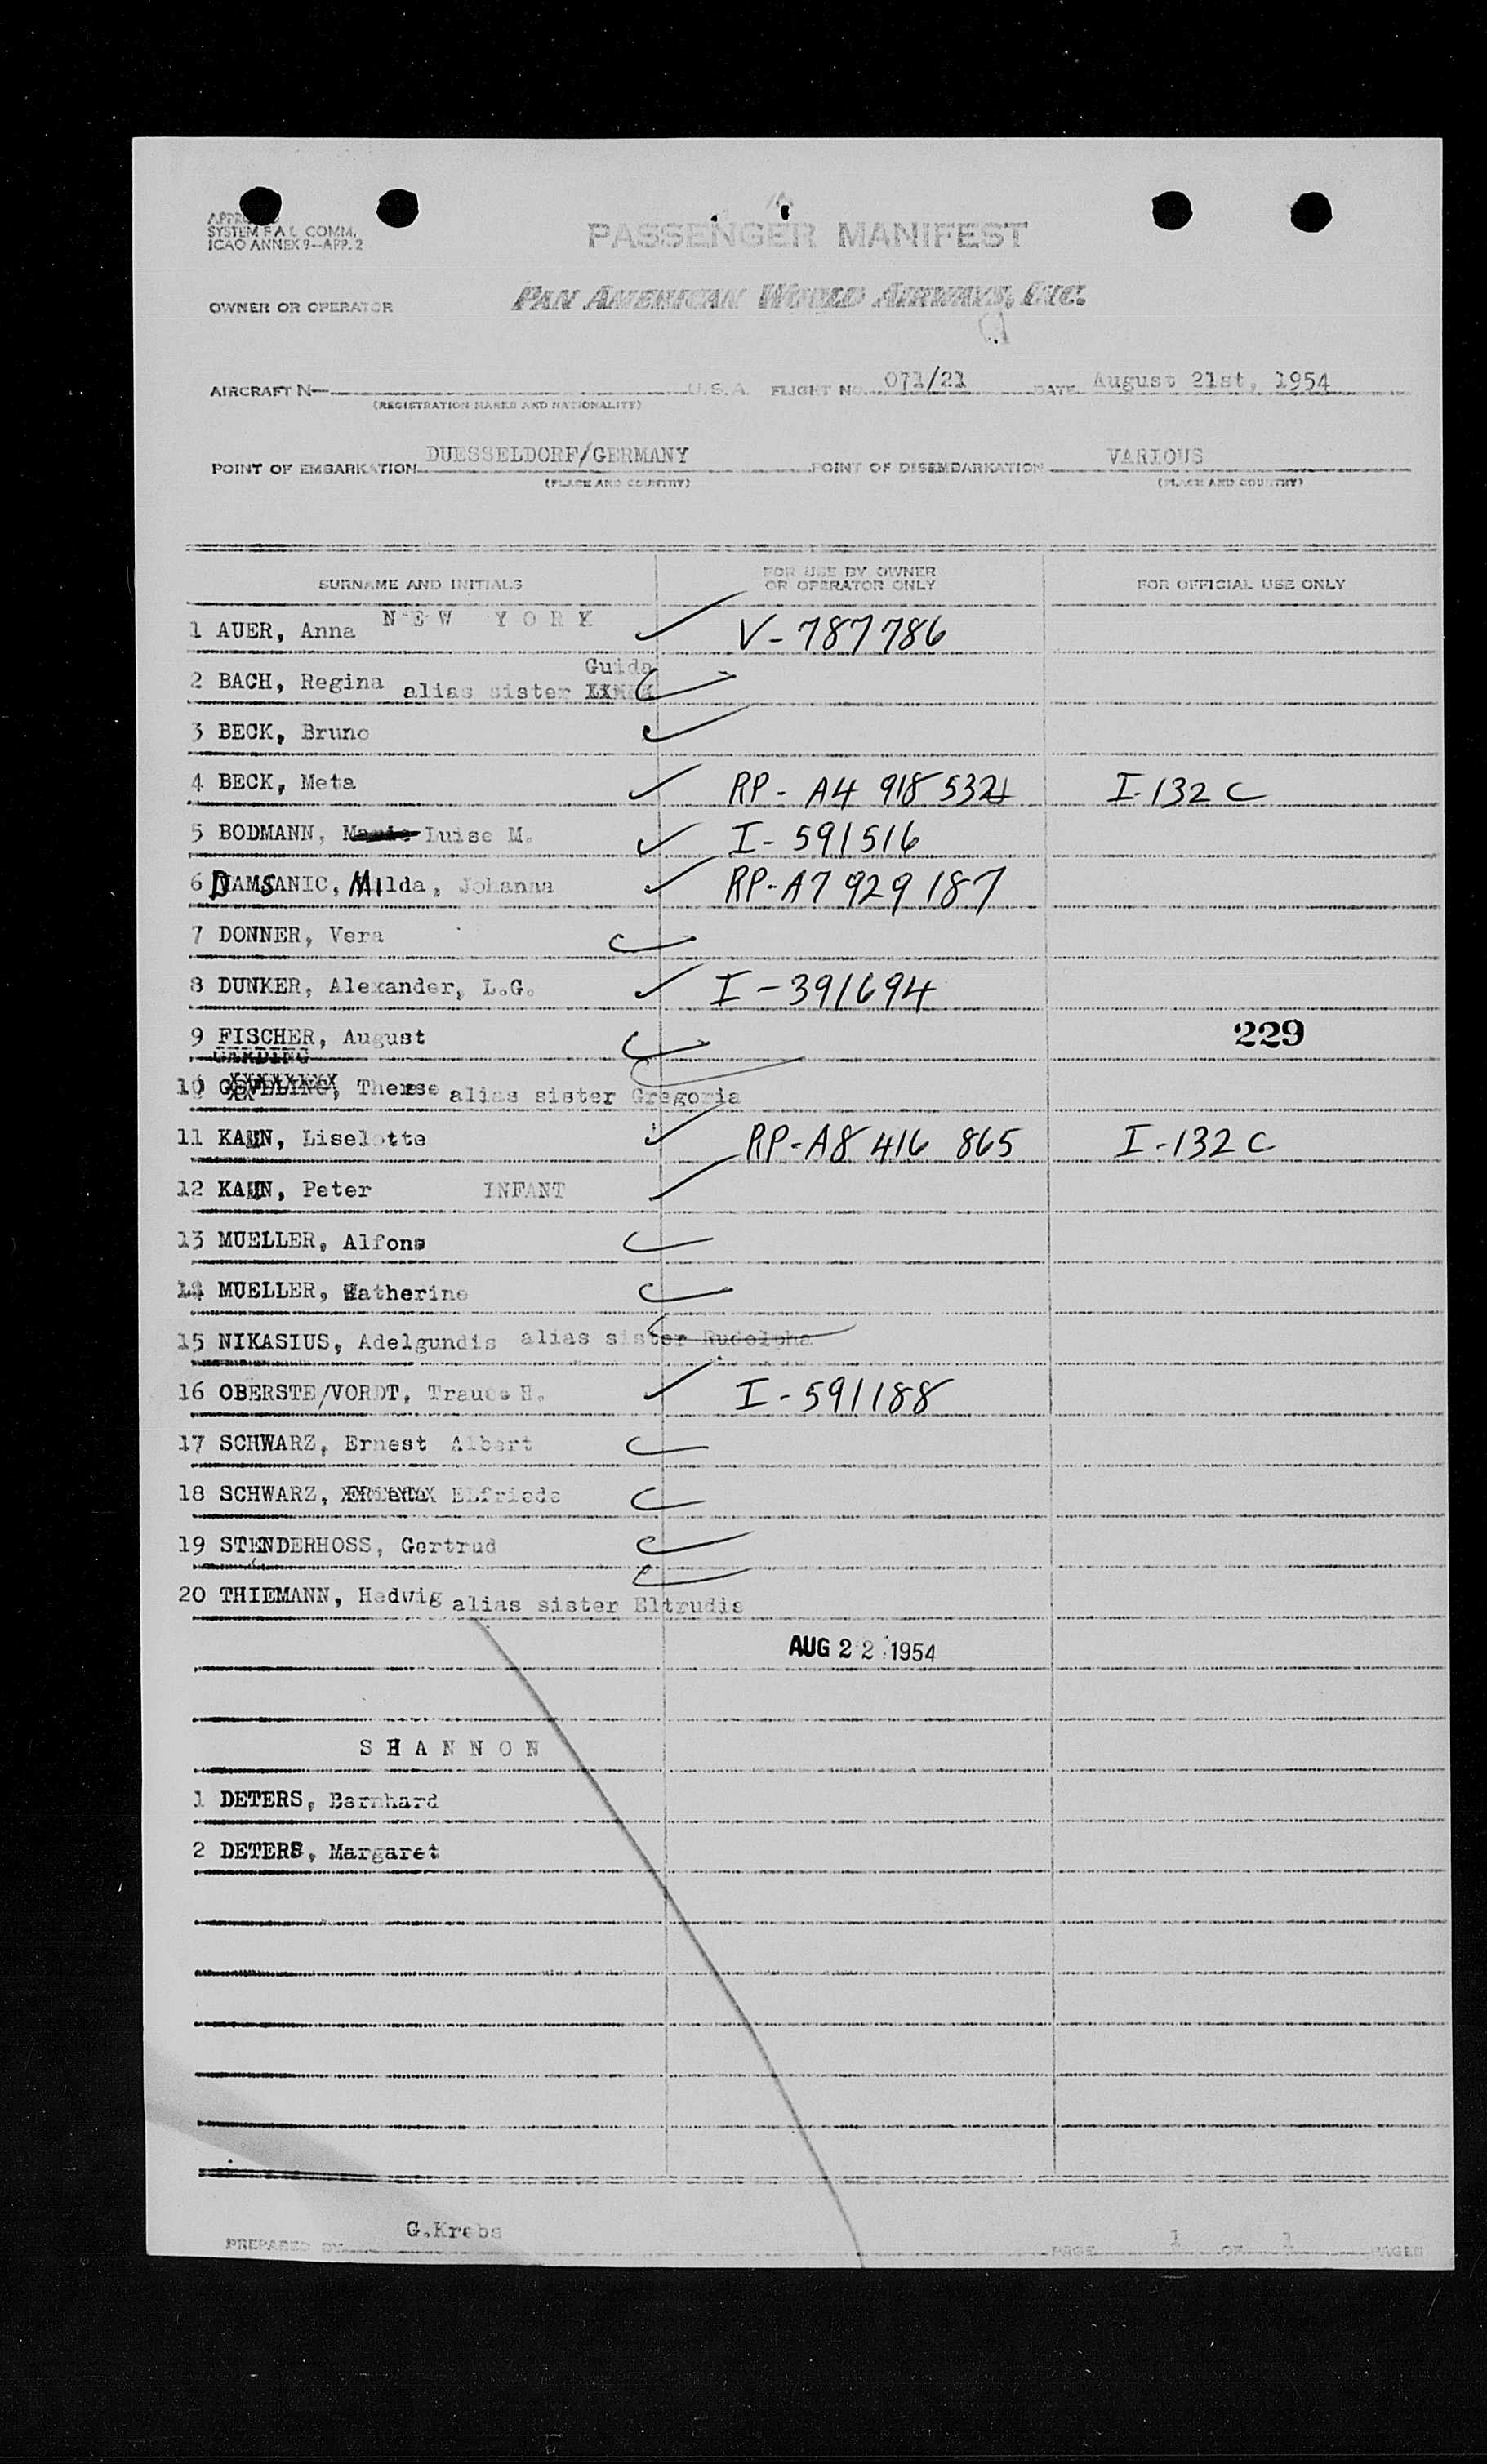 APPROVED
SYSTEM F A L COMM.
ICAO ANNEX 9-APP. 2
PASSENGER MANIFEST
OWNER OR OPERATOR PAN AMERICAN WORLD AIRWAYS, INC.
AIRCRAFT N- U.S.A. FLIGHT NO. 071/21 DATE August 21st, 1954
(REGISTRATION MARKS AND NATIONALITY)
POINT OF EMBARKATION DUESSELDORF/GERMANY POINT OF DISEMBARKATION VARIOUS
(PLACE AND COUNTRY) (PLACE AND COUNTRY)
SURNAME AND INITIALS FOR USE BY OWNER OR OPERATOR ONLY FOR OFFICIAL USE ONLY
N E W Y O R K
1 AUER, Anna V-787786
Guida
2 BACH, Regina alias sister
3 BECK, Bruno
4 BECK, Meta RP- A4 918 532 I-132 C
5 BODMANN, Marie Luise M. I- 591516
6 DAMSANIC, Milda, Johanna RP-A7 929 187
7 DONNER, Vera
8 DUNKER, Alexander, L.G. I-391694
9 FISCHER, August 229
GERDING
10 Therese alias sister Gregoria
11 KAUN, Liselotte RP-A8 416 865 I-132 C
12 KAUN, Peter INFANT
13 MUELLER, Alfons
14 MUELLER, Katherine
15 NIKASIUS, Adelgundis alias sister Rudolpha
16 OBERSTE/VORDT, H. I-591188
17 SCHWARZ, Ernest Albert
18 SCHWARZ, Elfriede
19 STENDERHOSS, Gertrud
20 THIEMANN, Hedwig alias sister Eltrudis
AUG 22 1954
S H A N N O N
1 DETERS, Bernhard
2 DETERS, Margaret
PREPARED BY G.Krebs PAGE 1 OF 1 PAGES